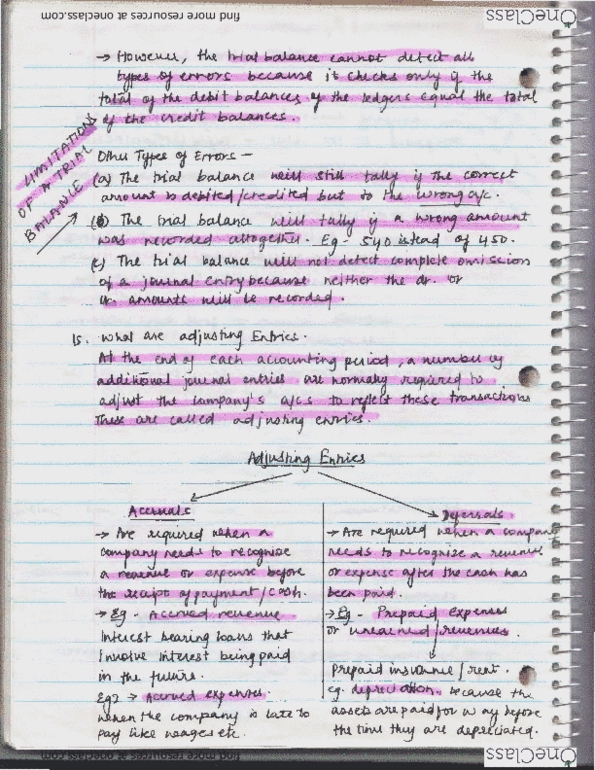 find more resources at oneclass.com
OneClass
→ However, the trial balance cannot detect all
types of errors because it checks only if the
total of the debit balances of the ledgers equal the total
of the credit balances.
LIMITATIONS
OF A TRIAL
BALANCE
Other Types of Errors –
(a) The trial balance will still tally if the correct
amount is debited/credited but to the wrong a/c.
(b) The trial balance will tally if a wrong amount
was recorded altogether. Eg - 540 instead of 450.
(c) The trial balance will not detect complete omission
of a journal entry because neither the dr. or
cr. amounts will be recorded.
15. What are adjusting Entries.
At the end of each accounting period, a number of
additional journal entries are normally required to
adjust the company's a/cs to reflect these transactions
These are called adjusting entries.
Adjusting Entries
Accruals
→ Are required when a
company needs to recognise
a revenue or expense before
the receipt of payment/cash.
→ Eg - Accrued revenue
Interest bearing loans that
involve interest being paid
in the future.
Eg2 → Accrued expenses
when the company is late to
pay like wages etc.
Deferrals
→ Are required when a company
needs to recognise a revenue
or expense after the cash has
been paid.
→ Eg - Prepaid expenses
or unearned/revenues.
Prepaid insurance/rent.
eg. depreciation. because the
assets are paid for way before
the time they are depreciated.
find more resources at oneclass.com
OneClass